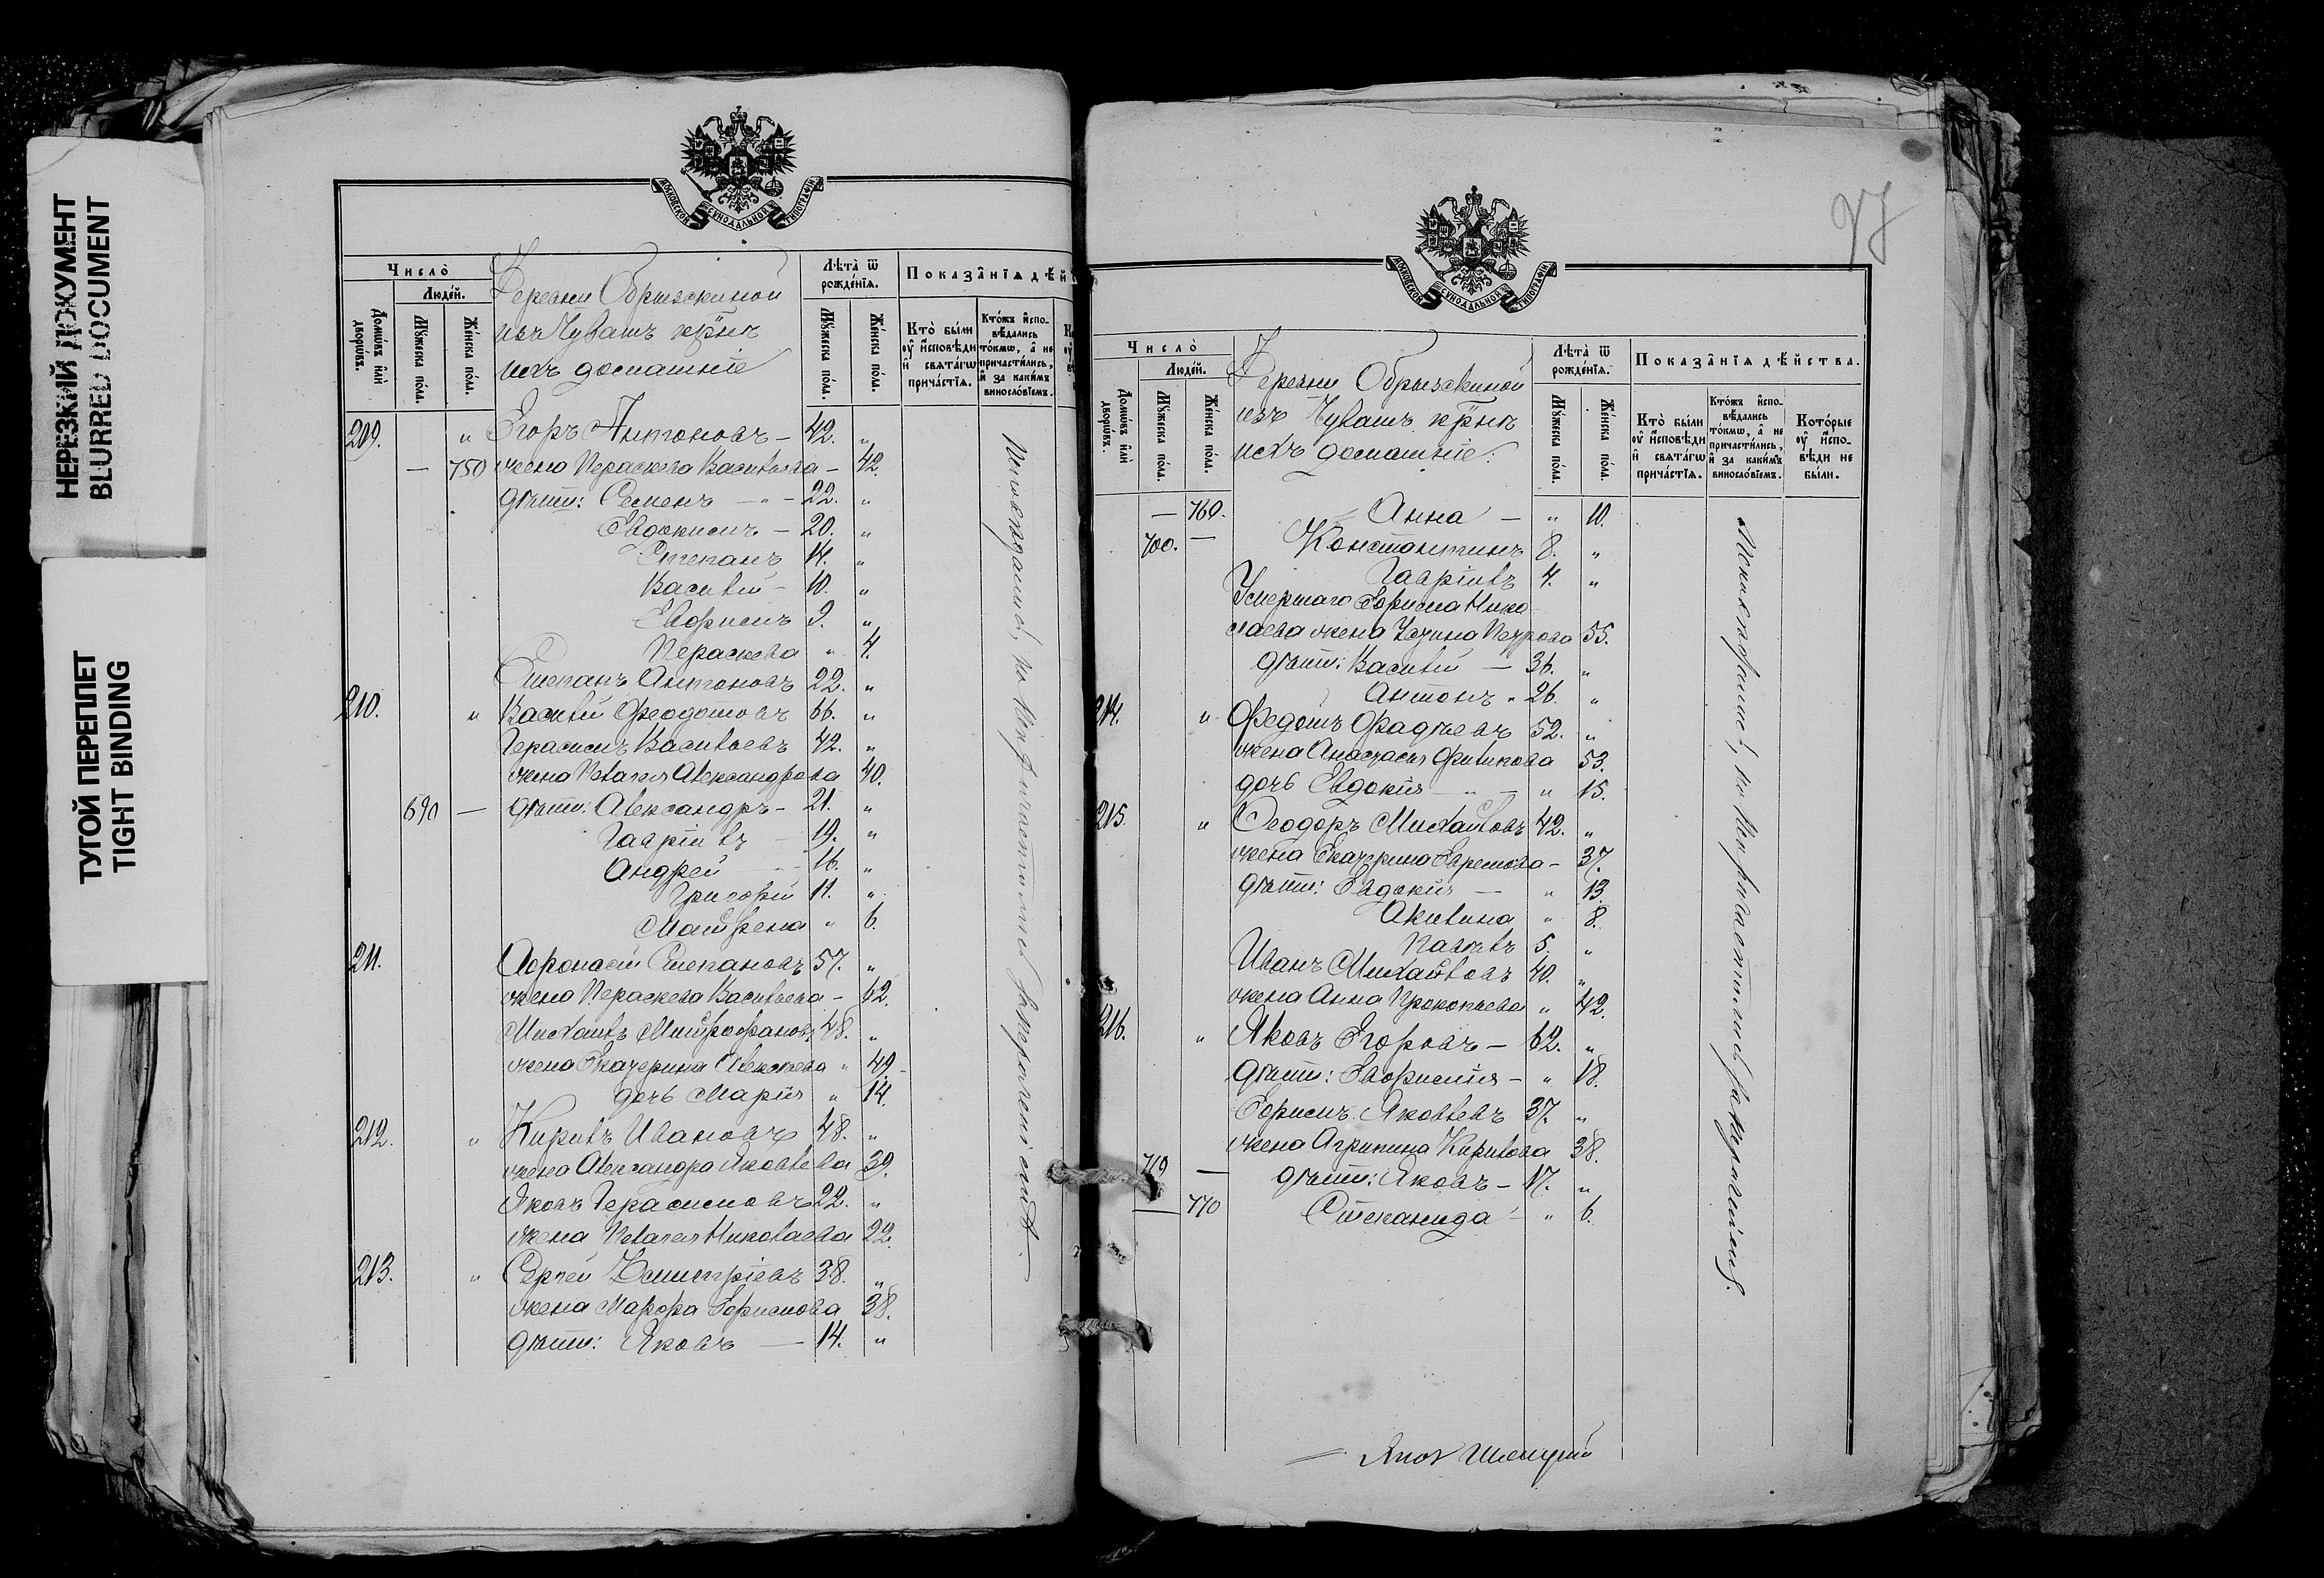 НЕРЕЗКИЙ ДОКУМЕНТ
BLURRED DOCUMENT
ТУГОЙ ПЕРЕПЛЕТ
TIGHT BINDING
МОСКОВСКОЙ СѴНОДАЛЬНОЙ ТИПОГРАФІИ
Число̀
Люде́й.
Домѡ́въ и҆лѝ дворѡ́въ.
Мꙋ́жеска по́ла.
Же́нска по́ла.
Деревни Обрызскиной
изъ Чувашъ крѣнк
ихъ домашніе
Лѣ́та ѿ рожде́нїѧ.
Мꙋ́жеска по́ла.
Же́нска по́ла.
Показа̑нїѧ дѣ́й
Кто̀ бы́ли ᲂу҆ и҆́сповѣди и҆ свѧта́гѡ прича́стїѧ.
Кто́жъ и҆спо-вѣ́дались то́кмѡ, а҆ не причасти́лись, и҆ за каки́мъ виносло́вїемъ.
209. " Егоръ Антоновъ — 42. "
— 750 жена Параскева Васильева — 42.
дѣти: Семенъ — " — 22. "
Евдокимъ — 20. "
Степанъ 14. "
Василій — 10. "
Ефримъ 9. "
Параскева " 4.
Степанъ Антоновъ 22. "
210. " Василій Феодотовъ 66. "
Герасимъ Васильевъ 42. "
жена Пелагея Александрова 40.
690 — дѣти: Александръ — 21. "
Гавріилъ — 19. "
Андрей — 16. "
Григорій 11. "
Матрена " 6.
211. Афонасій Степановъ 57. "
жена Параскева Васильева — 62.
Михаилъ Митрофановъ 48. "
жена Екатерина Алексѣева " 49.
дочь Марія " 14.
212. " Кирилъ Ивановъ 48. "
жена Александра Яковлева 39.
Яковъ Герасимовъ 22. "
жена Пелагея Николаева 22.
213. " Сергѣй Дмитріевъ 38. "
жена Марфа Ефимова 38.
дѣти: Яковъ — 14. "
МОСКОВСКОЙ СѴНОДАЛЬНОЙ ТИПОГРАФІИ
Число̀
Люде́й.
Домѡ́въ и҆лѝ дворѡ́въ.
Мꙋ́жеска по́ла.
Же́нска по́ла.
Деревни Обрызскиной
изъ Чувашъ крѣнк
ихъ домашніе:
Лѣ́та ѿ рожде́нїѧ.
Мꙋ́жеска по́ла.
Же́нска по́ла.
Показа̑нїѧ дѣ́йства.
Кто̀ бы́ли ᲂу҆ и҆́сповѣди и҆ свѧта́гѡ прича́стїѧ.
Кто́жъ и҆спо-вѣ́дались то́кмѡ, а҆ не причасти́лись, и҆ за каки́мъ винослов́їемъ.
Кото́рые ᲂу҆ и҆спо-вѣди не бы́ли.
— 760. Анна — " 10.
700. — Константинъ 8. "
Гавріилъ 4. "
Умершаго Ефима Нико
лаева жена Устина Петрова 55.
дѣти: Василій — 36. "
Антонъ " 26. "
214. " Федотъ Фадѣевъ 52. "
жена Анастасія Филипова 53.
дочь Евдокія — " 15.
215. " Феодоръ Михайловъ 42. "
жена Екатерина Ефремова — 37.
дѣти: Евдокія — " 13.
Акилина " 8.
Павелъ 5. "
Иванъ Михайловъ 40. "
жена Анна Прокопьева " 42.
216. " Яковъ Егоровъ — 62. "
дѣти: Евфимія — " 18.
Ефимъ Яковлевъ 37. "
жена Агрипина Кирилова 38.
710 — дѣти: Яковъ — 17. "
770 Степанида — " 6.